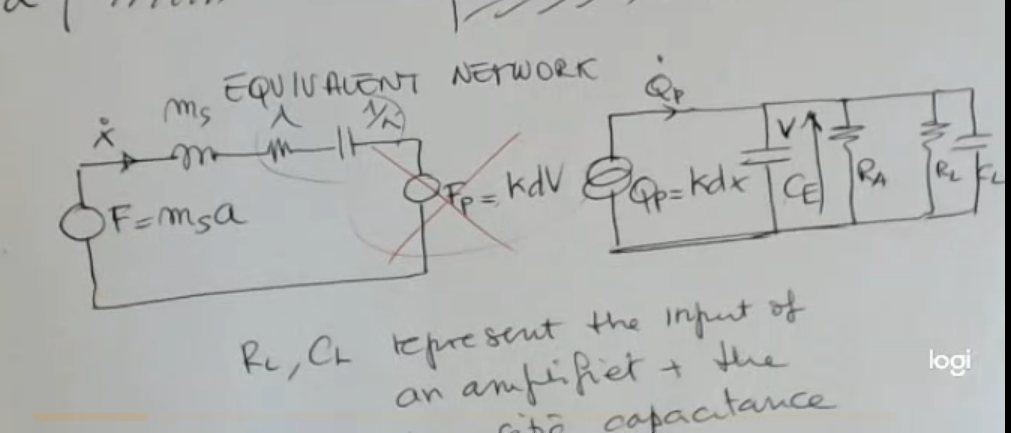 EQUIVALENT NETWORK
ms λ 1/k
ẋ
Q̇p
F=msa
Fp=kdV
Qp=kdx
V
CE
RA
RL
CL
RL, CL represent the input of
an amplifier + the
capacitance
logi